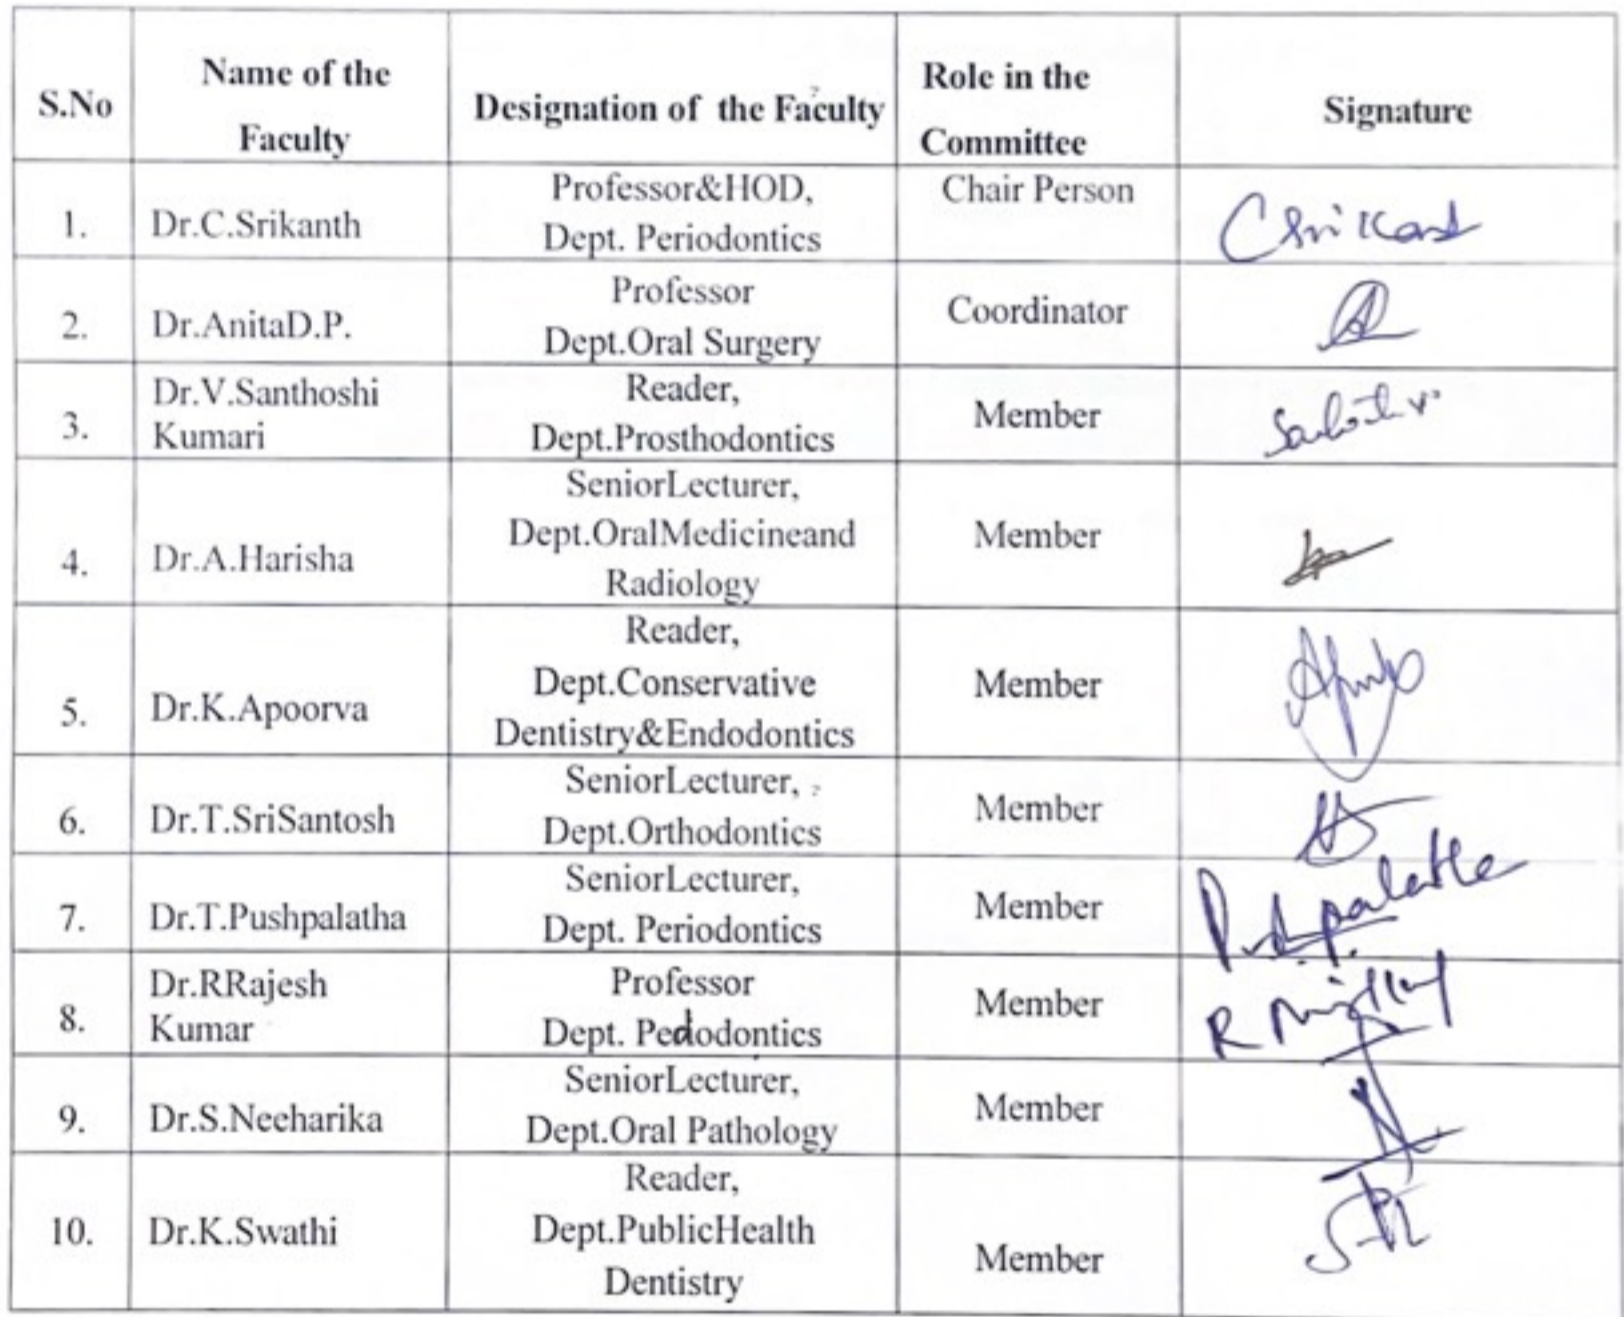 S.No
Name of the
Faculty
Designation of the Faculty
Role in the
Committee
Signature
1.
Dr.C.Srikanth
Professor&HOD,
Dept. Periodontics
Chair Person
2.
Dr.AnitaD.P.
Professor
Dept.Oral Surgery
Coordinator
3.
Dr.V.Santhoshi
Kumari
Reader,
Dept.Prosthodontics
Member
4.
Dr.A.Harisha
SeniorLecturer,
Dept.OralMedicineand
Radiology
Member
5.
Dr.K.Apoorva
Reader,
Dept.Conservative
Dentistry&Endodontics
Member
6.
Dr.T.SriSantosh
SeniorLecturer,
Dept.Orthodontics
Member
7.
Dr.T.Pushpalatha
SeniorLecturer,
Dept. Periodontics
Member
8.
Dr.RRajesh
Kumar
Professor
Dept. Pedodontics
Member
R
9.
Dr.S.Neeharika
SeniorLecturer,
Dept.Oral Pathology
Member
10.
Dr.K.Swathi
Reader,
Dept.PublicHealth
Dentistry
Member